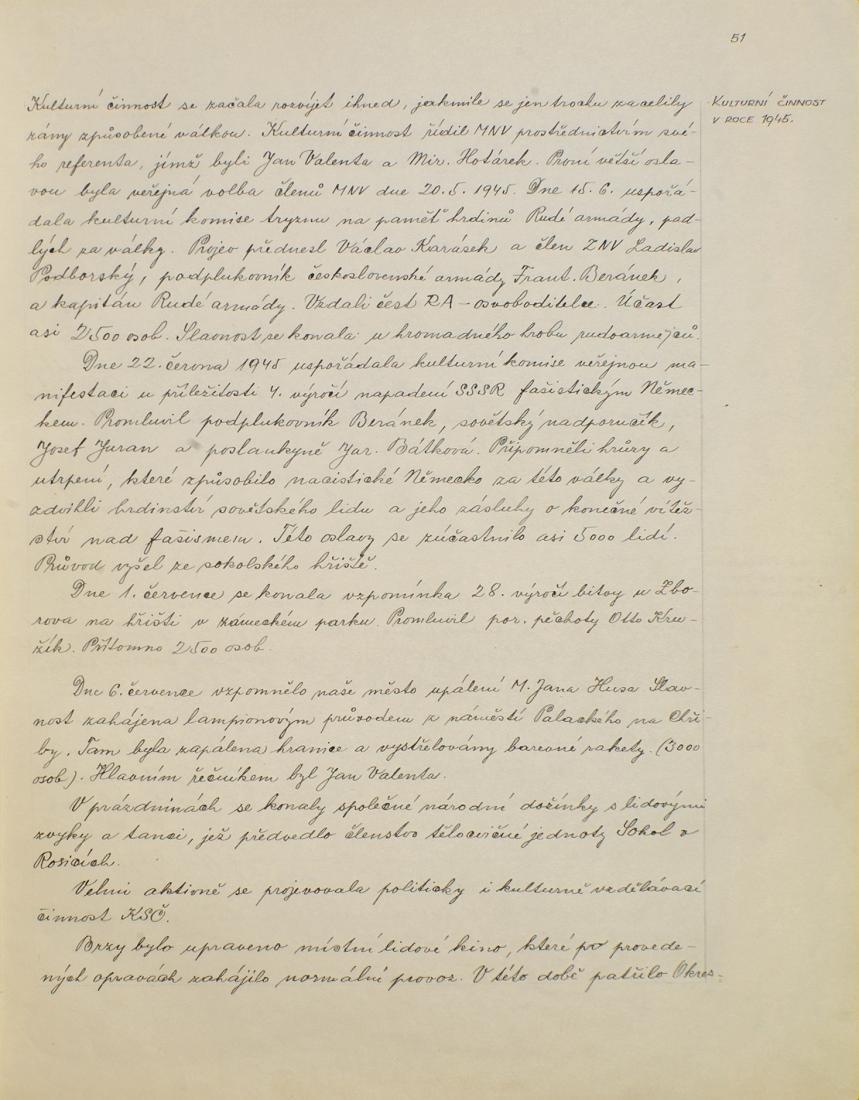 51
Kulturní činnost se začala rozvíjet ihned, jakmile se jen trochu zacelily
rány způsobené válkou. Kulturní činnost řídil MNV prostřednictvím své-
ho referenta, jímž byli Jan Valenta a Mir. Hotárek. První větší osla-
vou byla veřejná volba členů MNV dne 20.5.1945. Dne 15.6. uspořá-
dala kulturní komise tryznu na paměť hrdinů Rudé armády, pad-
lých za války. Projev přednesl Václav Karásek a člen ZNV Ladislav
Podborský, podplukovník československé armády Frant. Beránek,
a kapitán Rudé armády. Vzdali čest RA – osvoboditelce. Účast
asi 2500 osob. Slavnost se konala u hromadného hrobu rudoarmějců.
Dne 22. června 1945 uspořádala kulturní komise veřejnou ma-
nifestaci u příležitosti 4. výročí napadení SSSR fašistickým Němec-
kem. Promluvil podplukovník Beránek, sovětský nadporučík,
Josef Juran a poslankyně Jar. Bátková. Připomněli hrůzy a
utrpení, které způsobilo nacistické Německo za této války a vy-
zdvihli hrdinství sovětského lidu a jeho zásluhy o konečné vítěz-
ství nad fašismem. Této oslavy se zúčastnilo asi 5000 lidí.
Průvod vyšel ze sokolského hřiště.
Dne 1. července se konala vzpomínka 28. výročí bitvy u Zbo-
rova na hřišti v zámeckém parku. Promluvil por. pěchoty Otto Kru-
žík. Přítomno 2500 osob.
Dne 6. července vzpomnělo naše město upálení M. Jana Husa Slav-
nost zahájena lampionovým průvodem z náměstí Palackého na Chři-
by. Tam byla zapálena hranice a vystřelovány barevné rakety. (3000
osob). Hlavním řečníkem byl Jan Valenta.
V prázdninách se konaly společné národní dožínky s lidovými
zvyky a tanci, jež předvedlo členstvo tělocvičné jednoty Sokol v
Rosicích.
Velmi aktivně se projevovala politicky i kulturně vzdělávací
činnost KSČ.
Brzy bylo upraveno místní lidové kino, které po provede-
ných opravách zahájilo normální provoz. V této době patřilo Okres-
KULTURNÍ ČINNOST
V ROCE 1945.